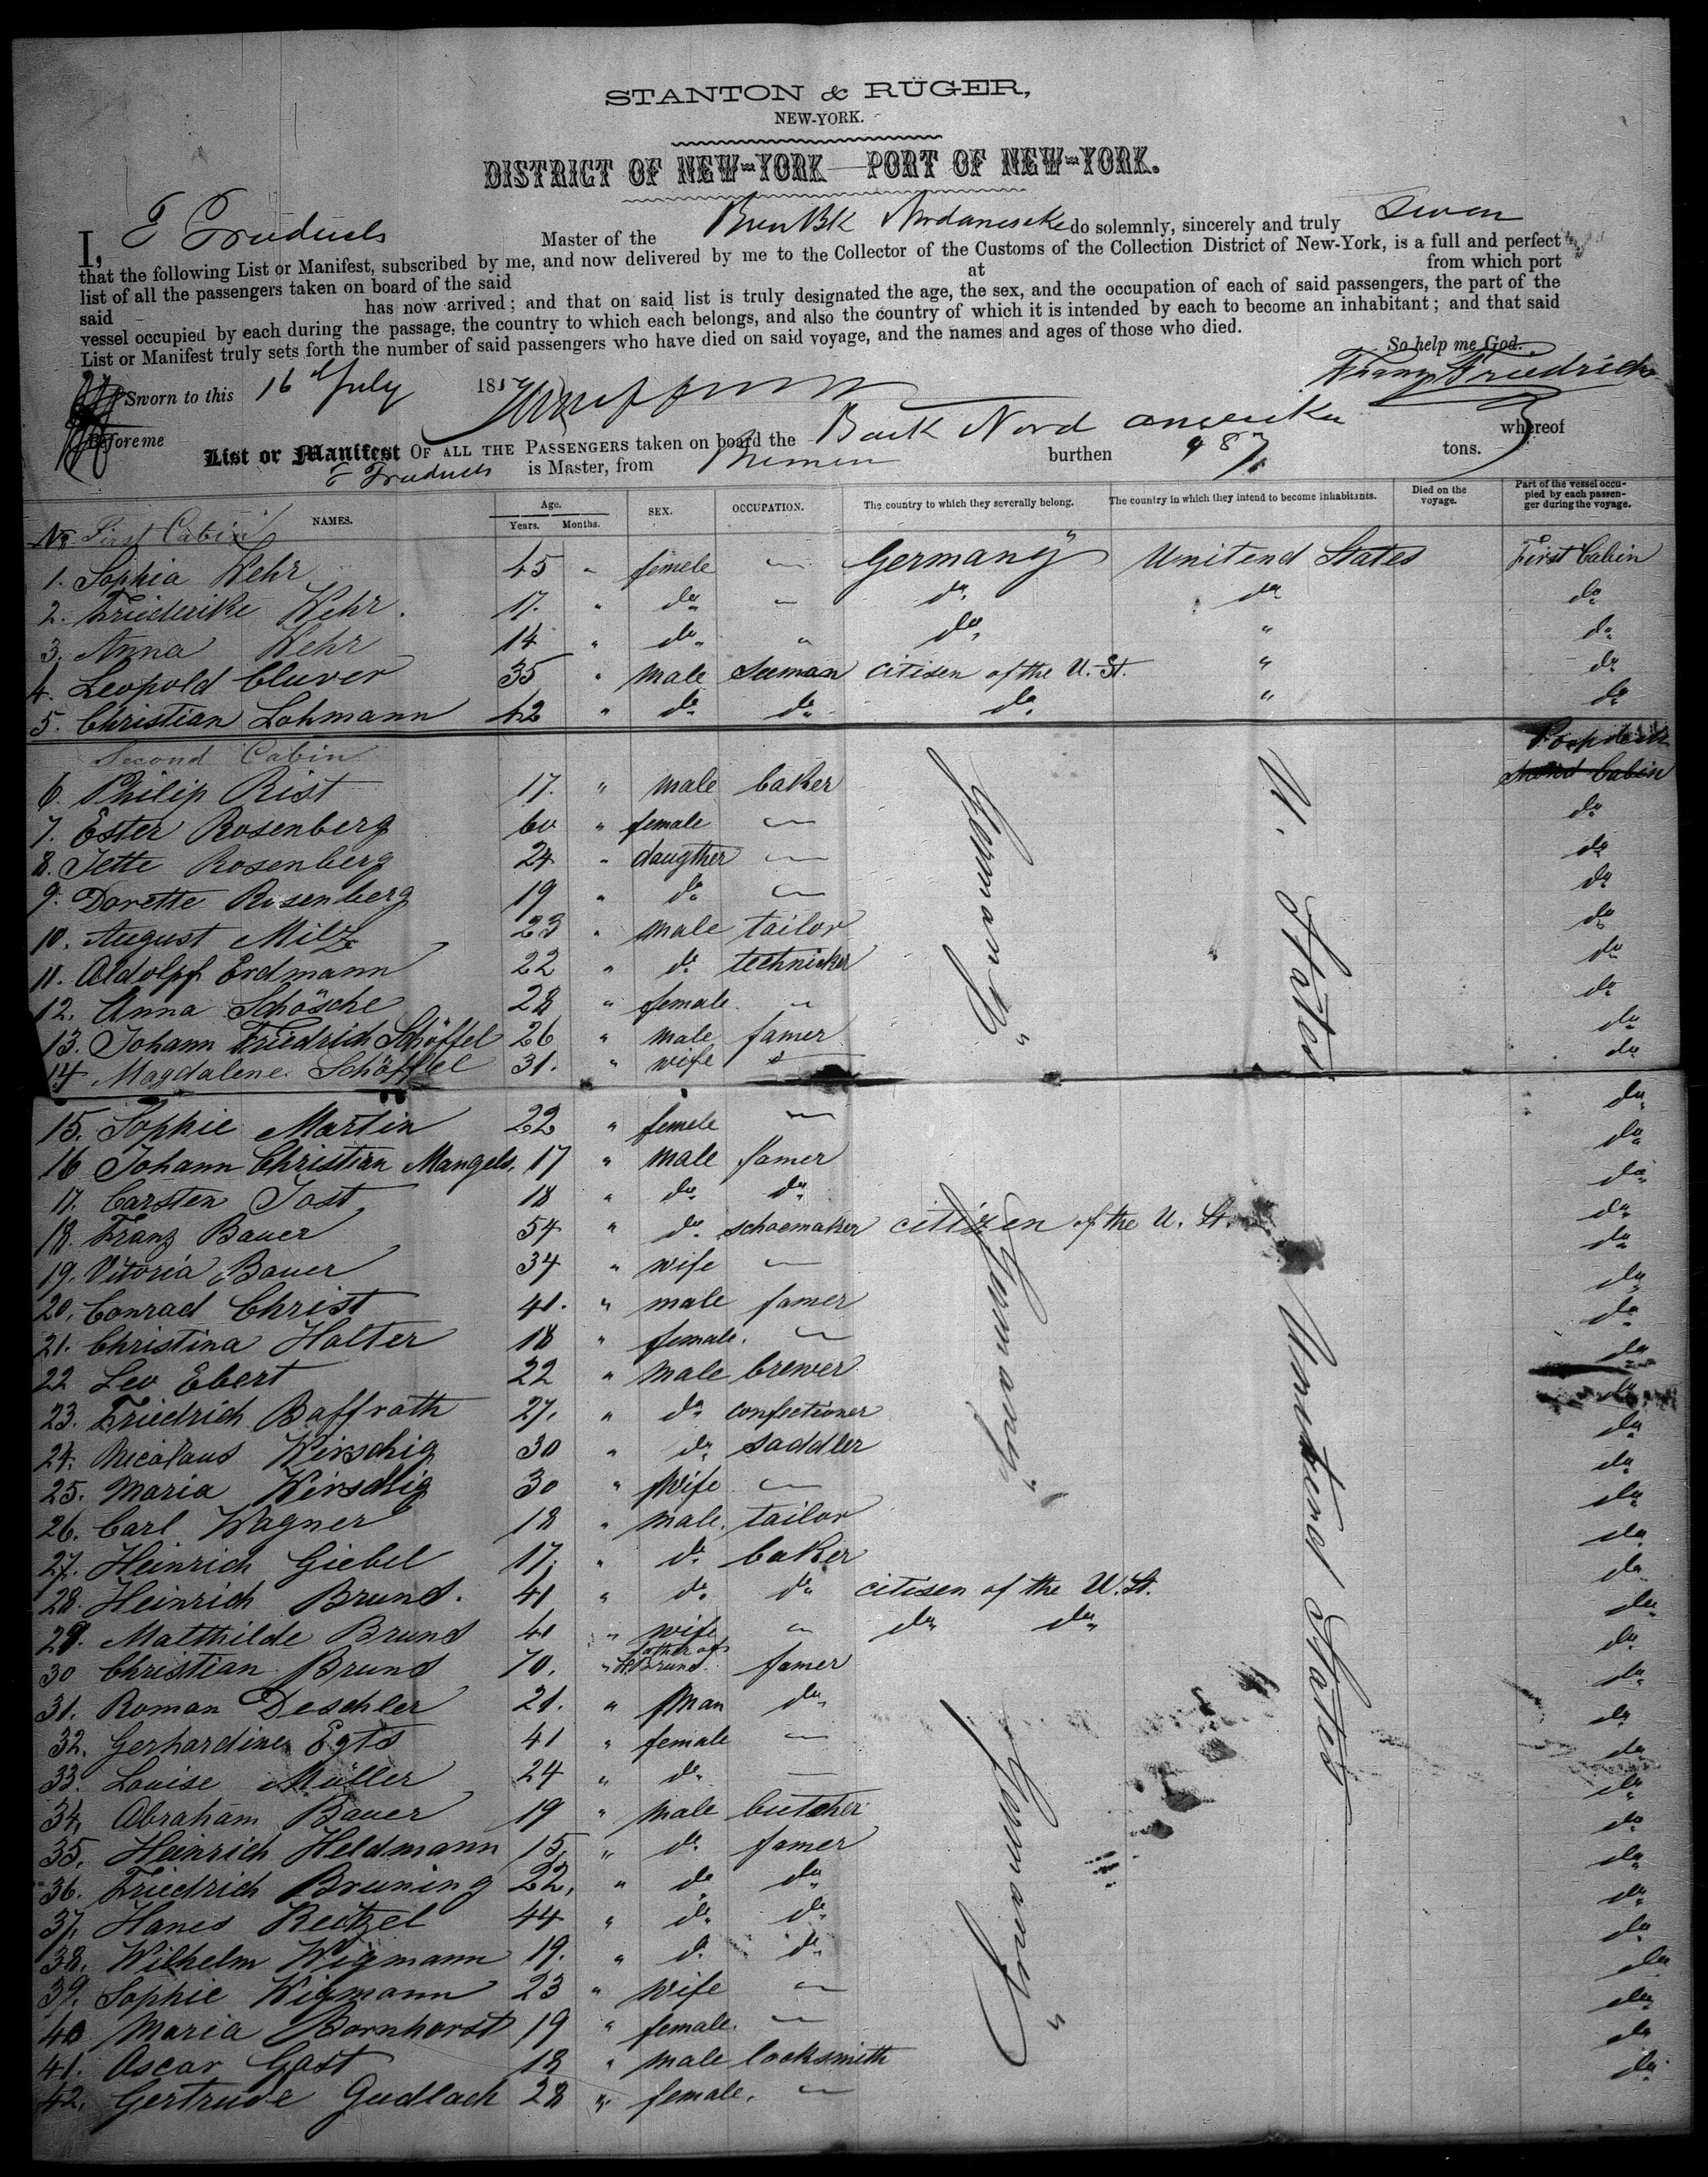 STANTON & RÜGER,
NEW-YORK.
DISTRICT OF NEW-YORK—PORT OF NEW-YORK.
I, Master of the do solemnly, sincerely and truly
that the following List or Manifest, subscribed by me, and now delivered by me to the Collector of the Customs of the Collection District of New-York, is a full and perfect
list of all the passengers taken on board of the said at from which port
said has now arrived; and that on said list is truly designated the age, the sex, and the occupation of each of said passengers, the part of the
vessel occupied by each during the passage, the country to which each belongs, and also the country of which it is intended by each to become an inhabitant; and that said
List or Manifest truly sets forth the number of said passengers who have died on said voyage, and the names and ages of those who died.
So help me God.
Sworn to this 16 July 18 Franz Friedrichs
Before me
List or Manifest OF ALL THE PASSENGERS taken on board the Bark Nord amerika whereof
is Master, from Bremen burthen 987 tons.
NAMES. Age. Years. Months. SEX. OCCUPATION. The country to which they severally belong. The country in which they intend to become inhabitants. Died on the voyage. Part of the vessel occupied by each passenger during the voyage.
No First Cabin
1. Sophia Wehr 45 " femele — Germany Unitend States First Cabin
2. Friederike Wehr. 17. " do — do do do
3. Anna Wehr 14 " do " do " do
4. Leopold Cluver 35 " male Seeman citisen of the U. St. " do
5. Christian Lohmann 42 " do do do " do
Second Cabin
6. Philip Rist 17. " male baker Germany U. States
7. Ester Rosenberg 60 " female — do
8. Jette Rosenberg 24 " daugther — do
9. Dorette Rosenberg 19 " do — do
10. August Milz 23 " male tailor do
11. Aldolpf Erdmann 22 " do techniker do
12. Anna Schösche 28 " female — do
13. Johann Friedrich Schöffel 26 " male famer do
14 Magdalene Schöffel 31. " wife do
15. Sophie Martin 22 " femele — do
16 Johann Christian Mangels, 17 " male famer do
17. Carsten Jost 18 " do do do
18. Franz Bauer 54 " do schoemaker citizen of the U. St. do
19. Vitoria Bauer 34 " wife — Germany Unitend States do
20. Conrad Christ 41. " male famer do
21. Christina Halter 18 " female. — do
22 Leo Ebert 22 " male brewer do
23. Friedrich Baffrath 27. " do confectioner do
24. Nicolaus Wirschig 30 " do saddler do
25. Maria Wirschig 30 " wife — do
26. Carl Wagner 18 " male. tailor do
27. Heinrich Giebel 17. " do baker do
28. Heinrich Bruns. 41 " do do citisen of the U. St. do
29. Matthilde Bruns 41 " wife " do do do
30 Christian Bruns 70. " father of H Bruns. famer do
31. Roman Deschler 21. " man do do
32. Gerhardine Egts 41 " female — do
33. Louise Müller 24 " do — do
34. Abraham Bauer 19 " male butcher Germany do
35. Heinrich Heldmann 15, " do famer do
36. Friedrich Bruning 22, " do do do
37. Hanes Reitzel 44 " do do do
38. Wilhelm Wigmann 19. " do do do
39. Sophie Wigmann 23 " wife — do
40 Maria Bornhorst 19 " female. — do
41. Oscar Gast 18 " male locksmith do
42. Gertrude Gudlach 28 " female. — do